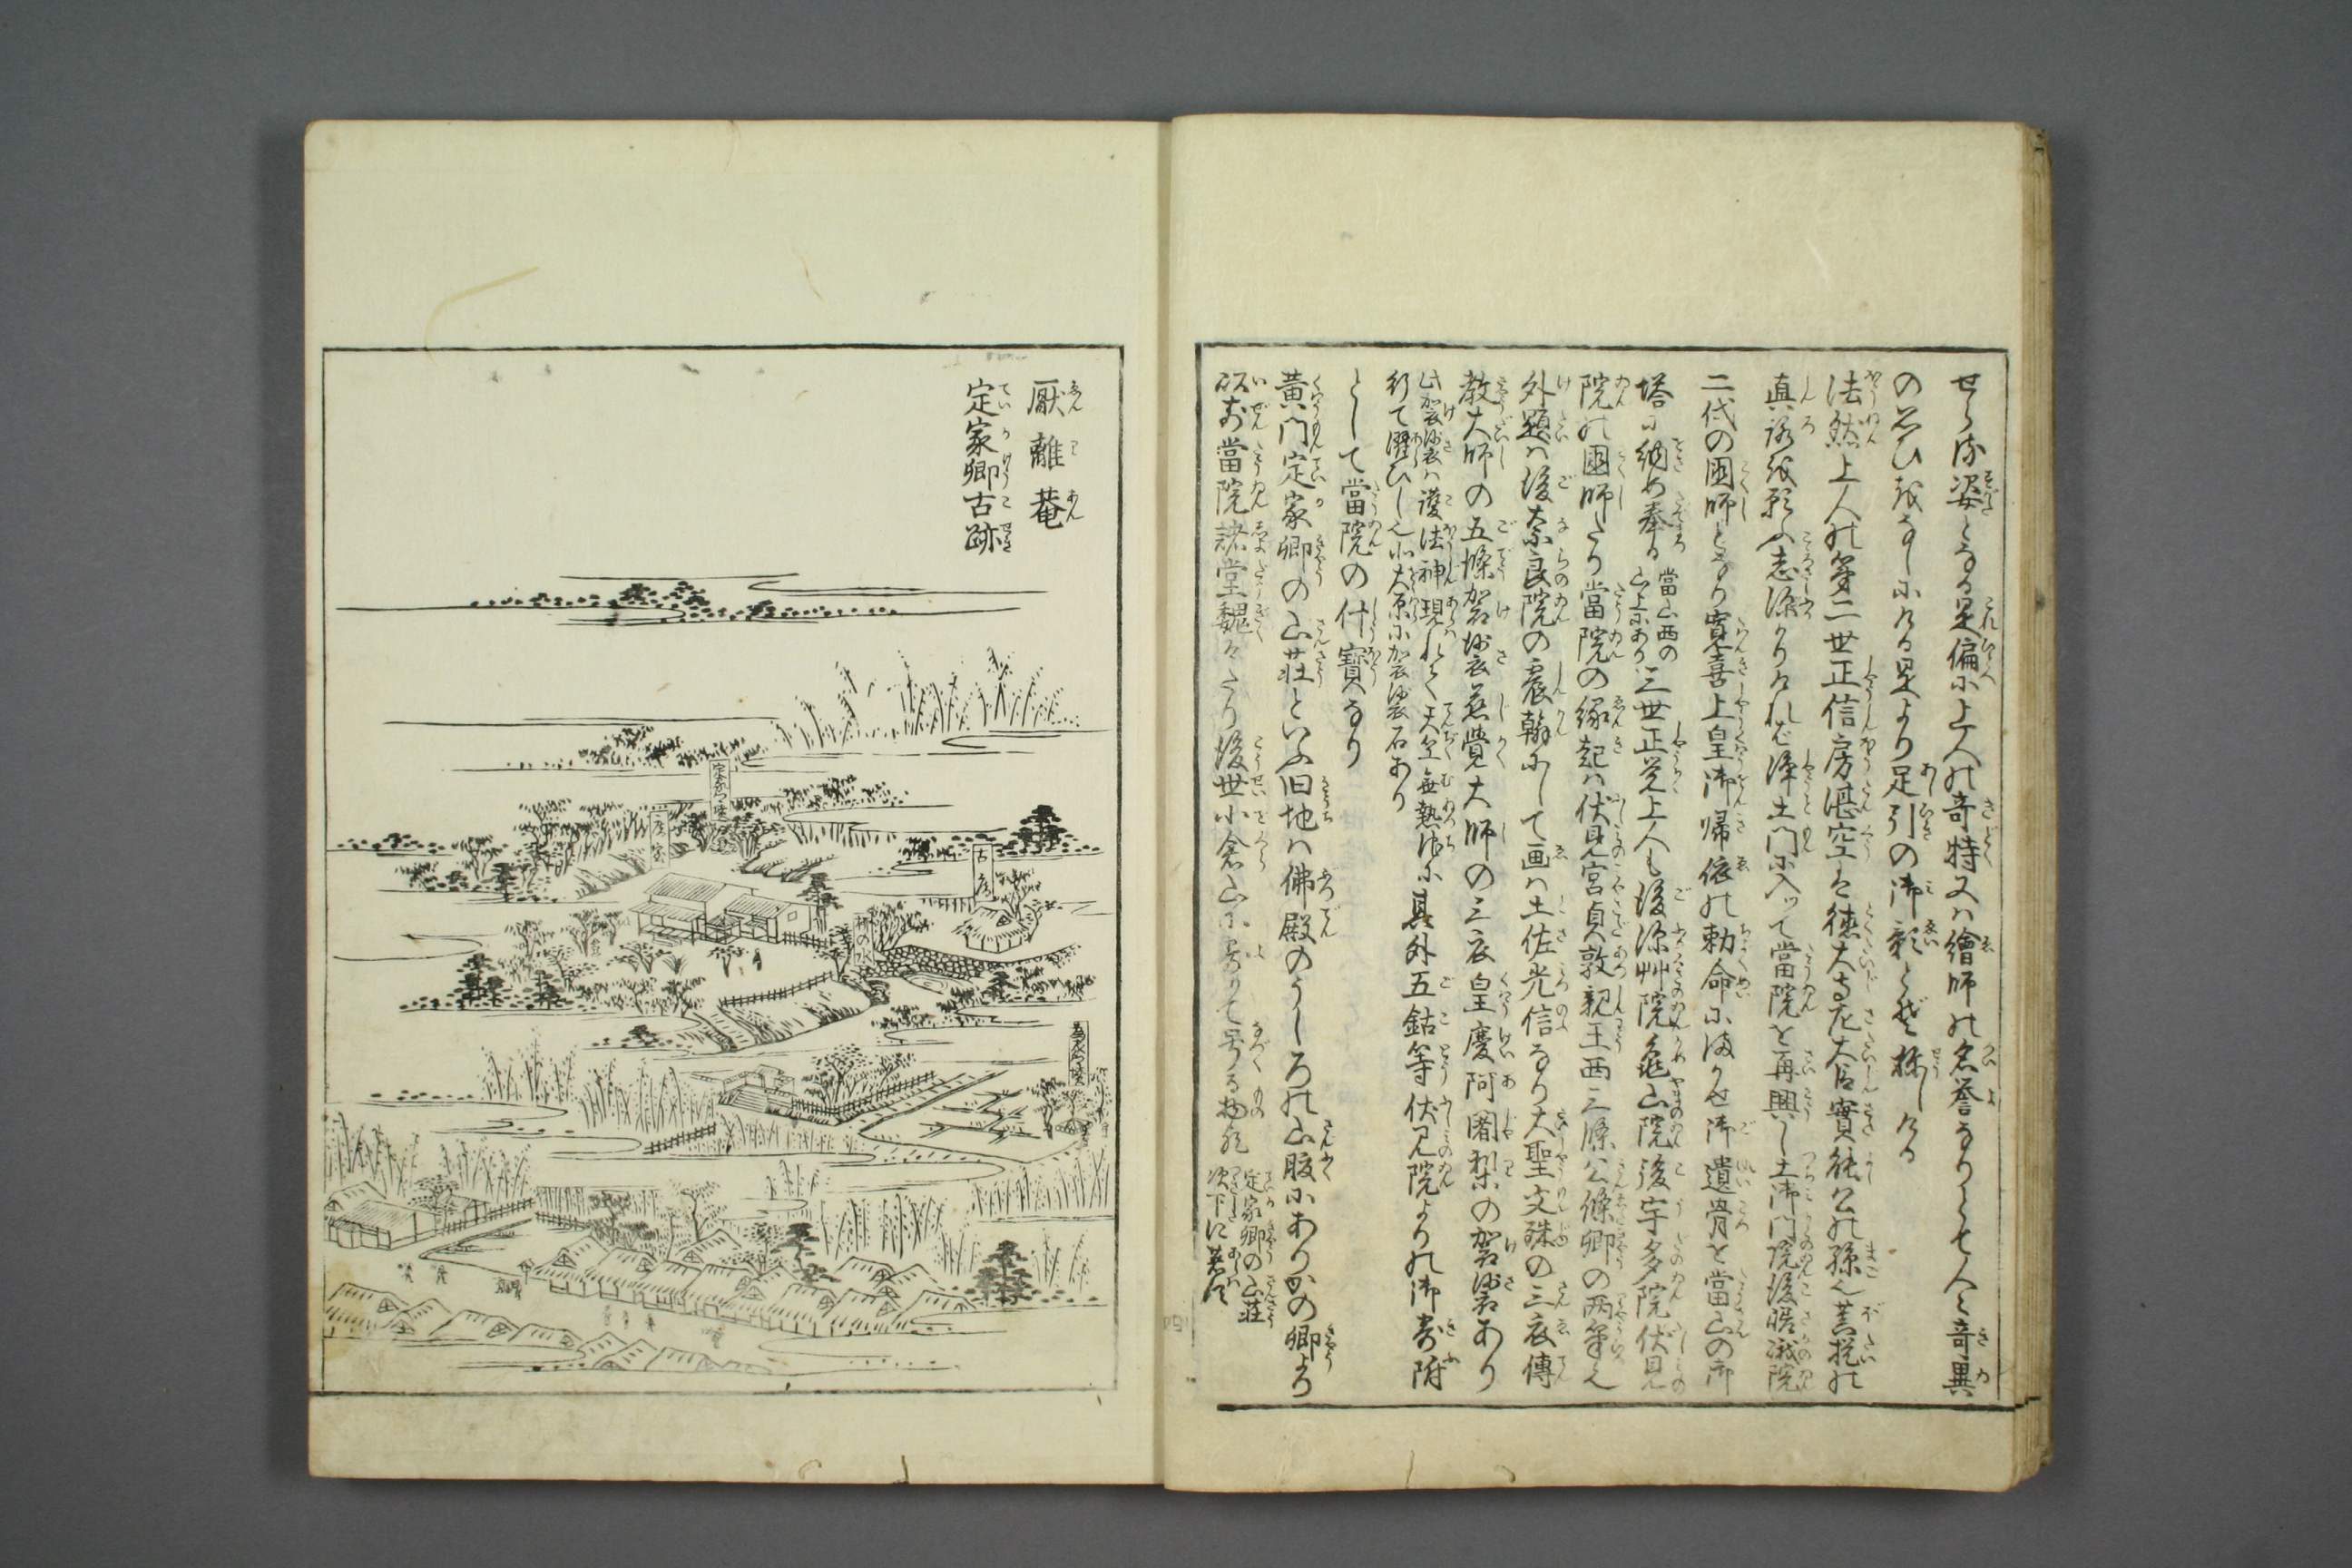 せらる姿となる是偏に上人の奇特又は繪師の名誉なりと世人奇異
の思ひをなしにける是より足引の御影とぞ称しける
法然上人の第二世正信房湛空は徳大寺左大臣實能公の孫也菩提の
真路を願ふ志深かりければ浄土門に入つて當院を再興し土御門院後嵯峨院
二代の國師となり寛喜上皇御帰依の勅命にまかせ御遺骨を當山の御
塔に納め奉る 當山西の山上にあり 三世正覚上人も後深艸院亀山院後宇多院伏見
院の國師たり當院の縁起は伏見宮貞敦親王西三條公條卿の両筆也
外題は後奈良院の宸翰にして画は土佐光信なり大聖文殊の三衣傳
教大師の五條袈裟慈覺大師の三衣皇慶阿闍梨の袈裟あり
此袈裟は護法神現れて天竺無熱池に
行て濯ひし也北大原に袈裟石あり
其外五鈷等伏見院よりの御寄附
として當院の什寳なり
黄門定家卿の山荘といふ旧地は佛殿のうしろの山腹にありかの卿より
以前當院諸堂巍々たり後世小倉山に寄りて号る物飲
定家卿の山荘
次下に著す
厭離菴
定家卿古跡
定家づか
古座
柳の水